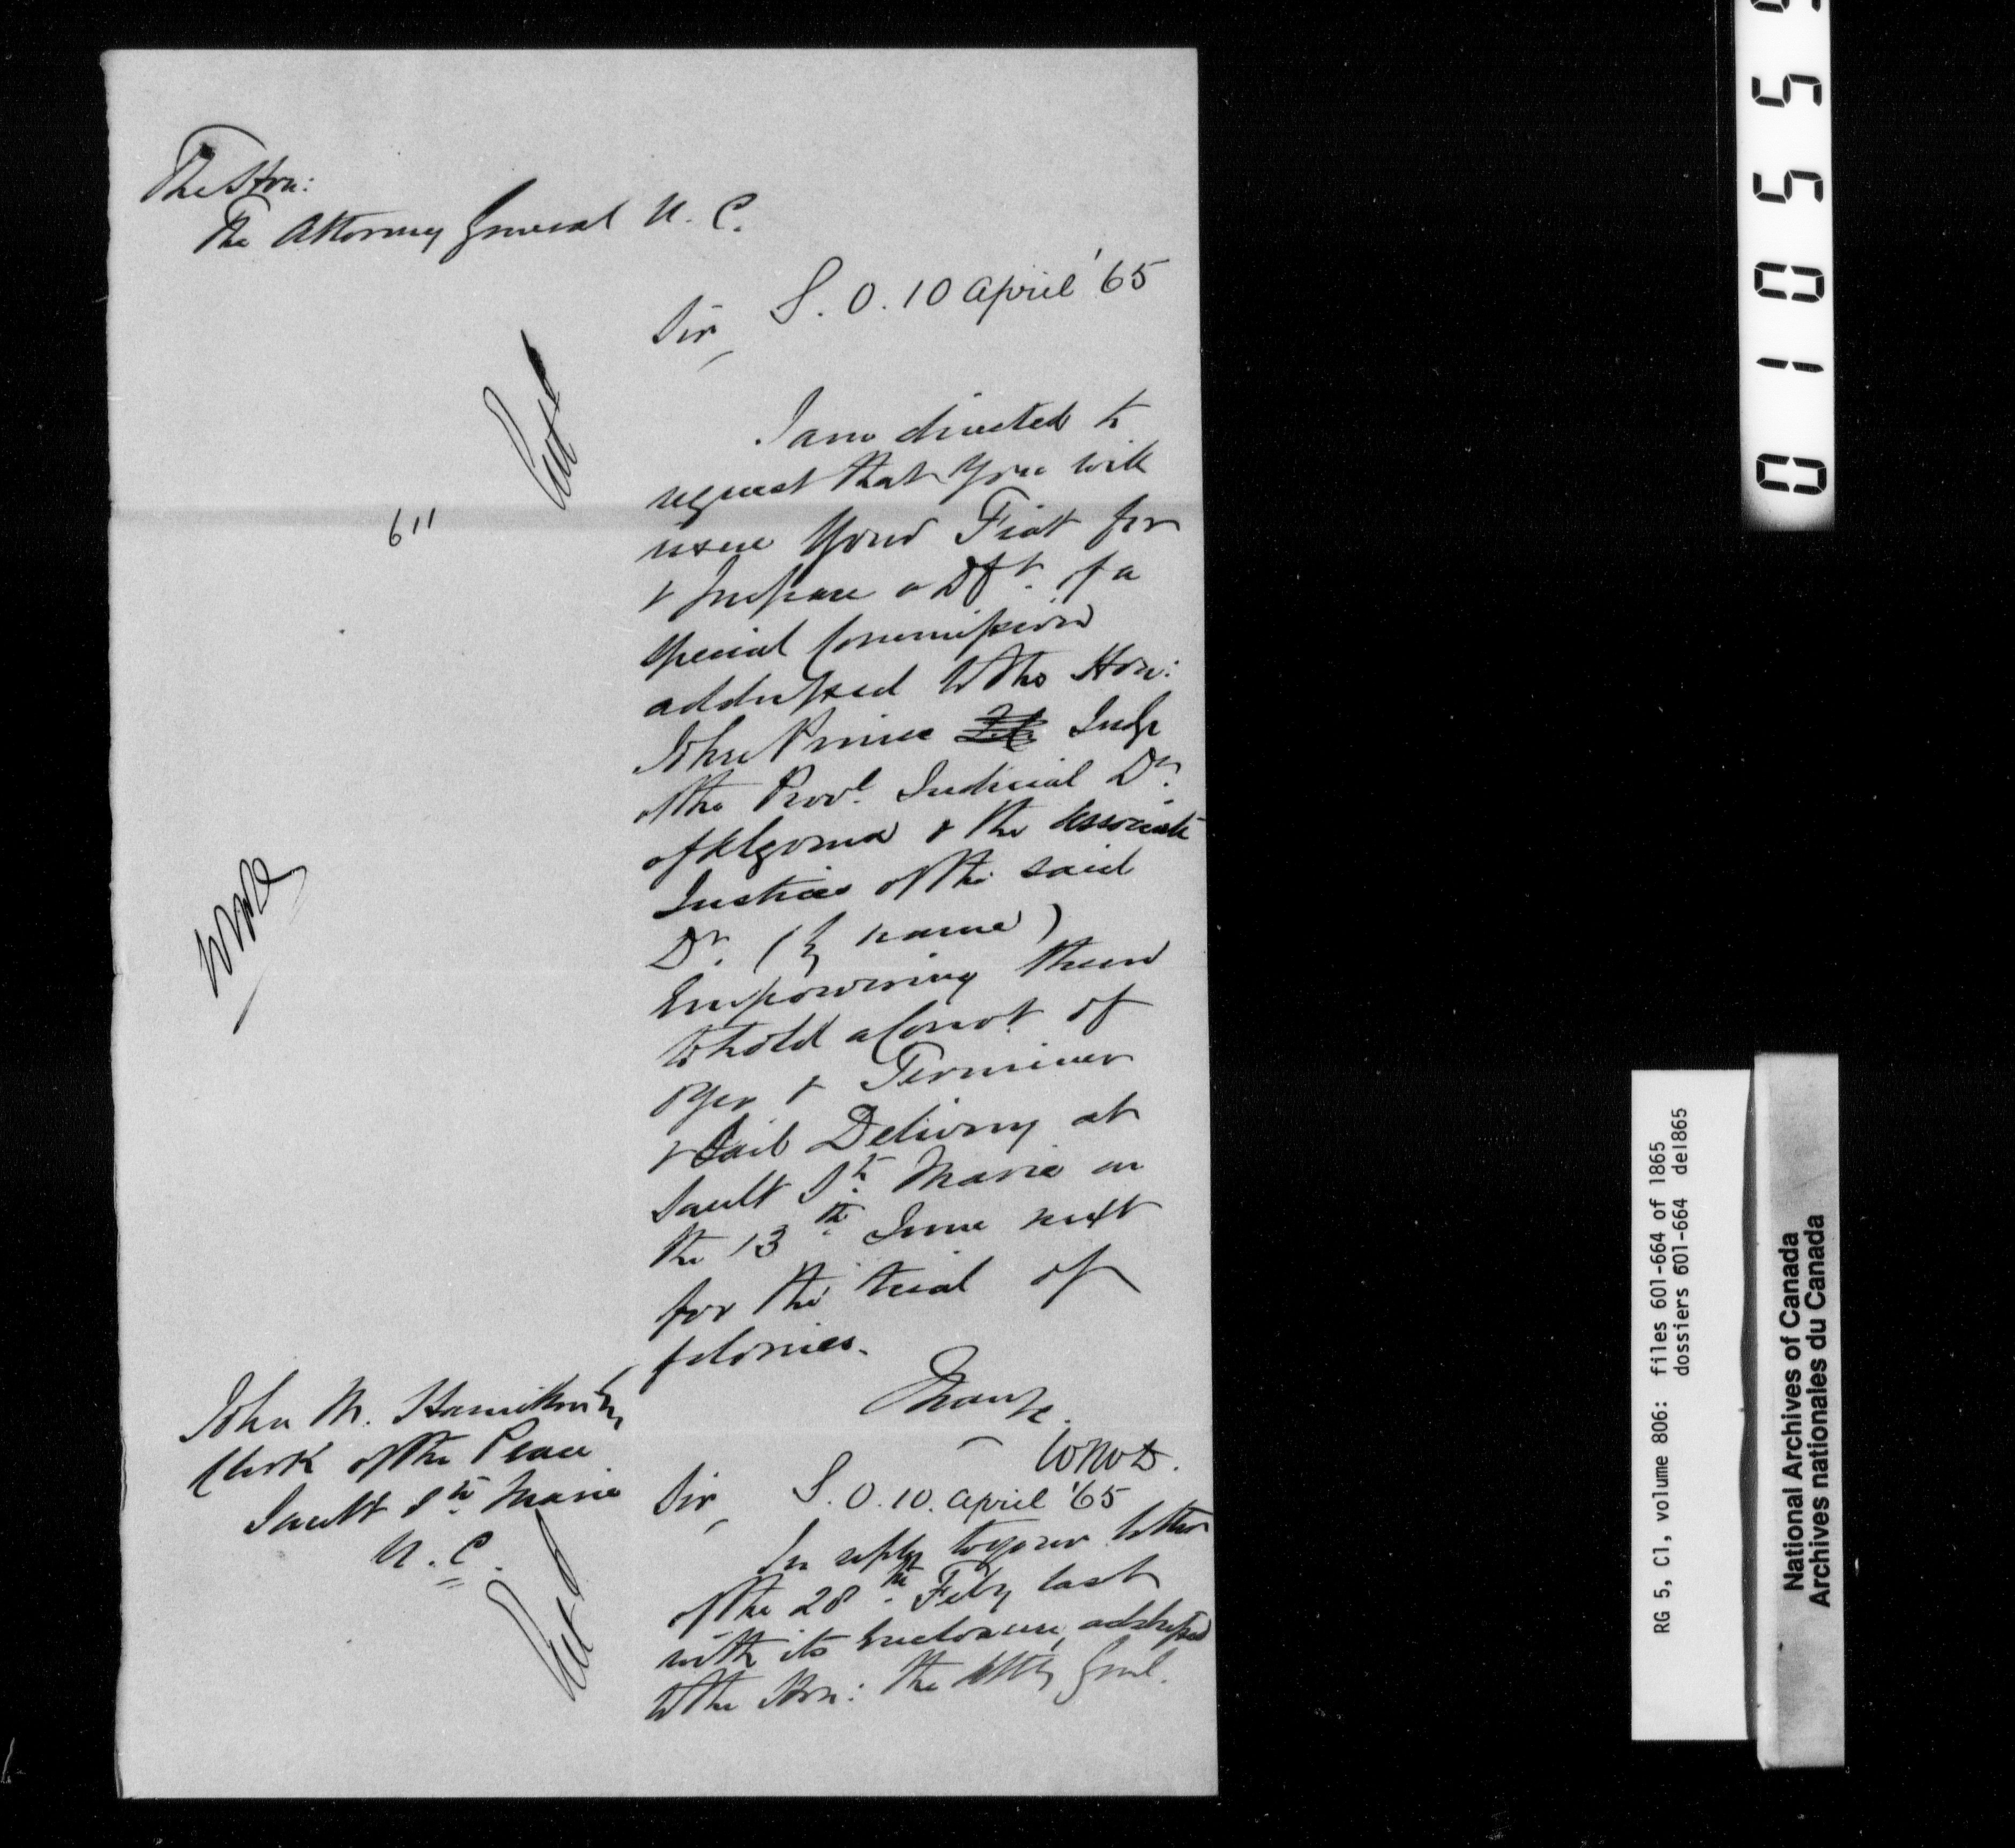 The Hon:
The Attorney General U. C.
S. O. 10 April '65
Sir,
611
I am directed to
request that you will
issue your Fiat for
& prepare a Dft. of a
special Commission
addressed to the Hon:
John Prince Judge
of the Provl. Judicial Dt.
of Algoma & the Associate
Justices of the said
Dt. (by name)
Empowering them
to hold a Court of
Oyer & Terminer
& Gail Delivery at
Sault Ste. Marie on
the 13th June next
for the trial of
felonies.
I have &c.
John M. Hamilton Esq
Clerk of the Peace
Sault Ste Marie
U. C.
Sir, S. O. 10. April '65
In reply to your letter
of the 28th Feby last
with its Enclosure, addressed
to the Hon: the Atty Genl.
010555
RG 5, C1, volume 806: files 601-664 of 1865
dossiers 601-664 de1865
National Archives of Canada
Archives nationales du Canada